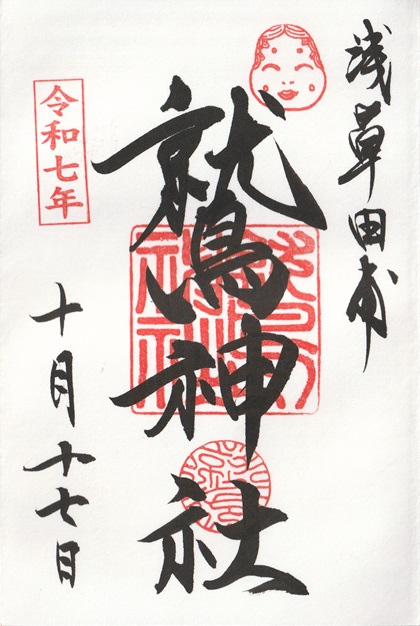 浅草田甫
鷲神社
令和七年
十月十七日